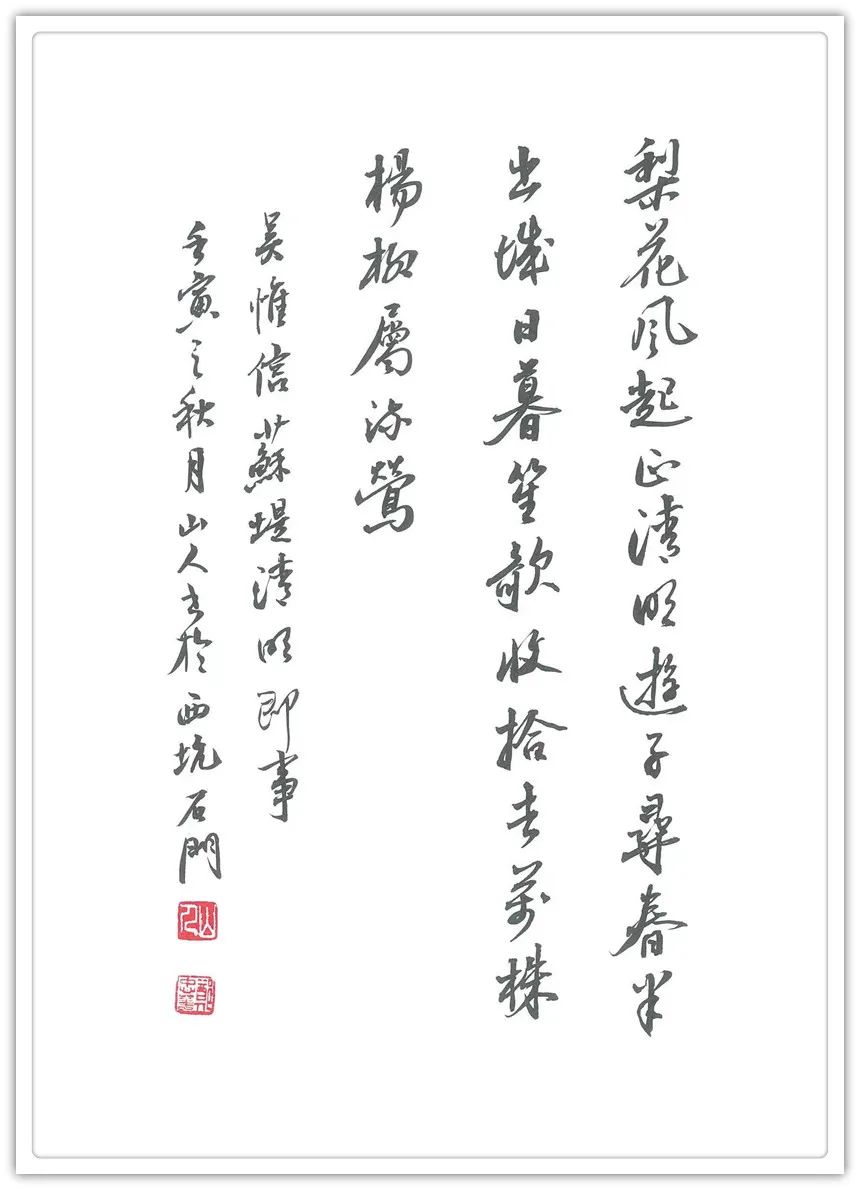 梨花風起正清明遊子尋春半
出城日暮笙歌收拾去萬株
楊柳屬流鶯
吳惟信蘇堤清明即事
壬寅之秋月山人書於西坑石門
山人